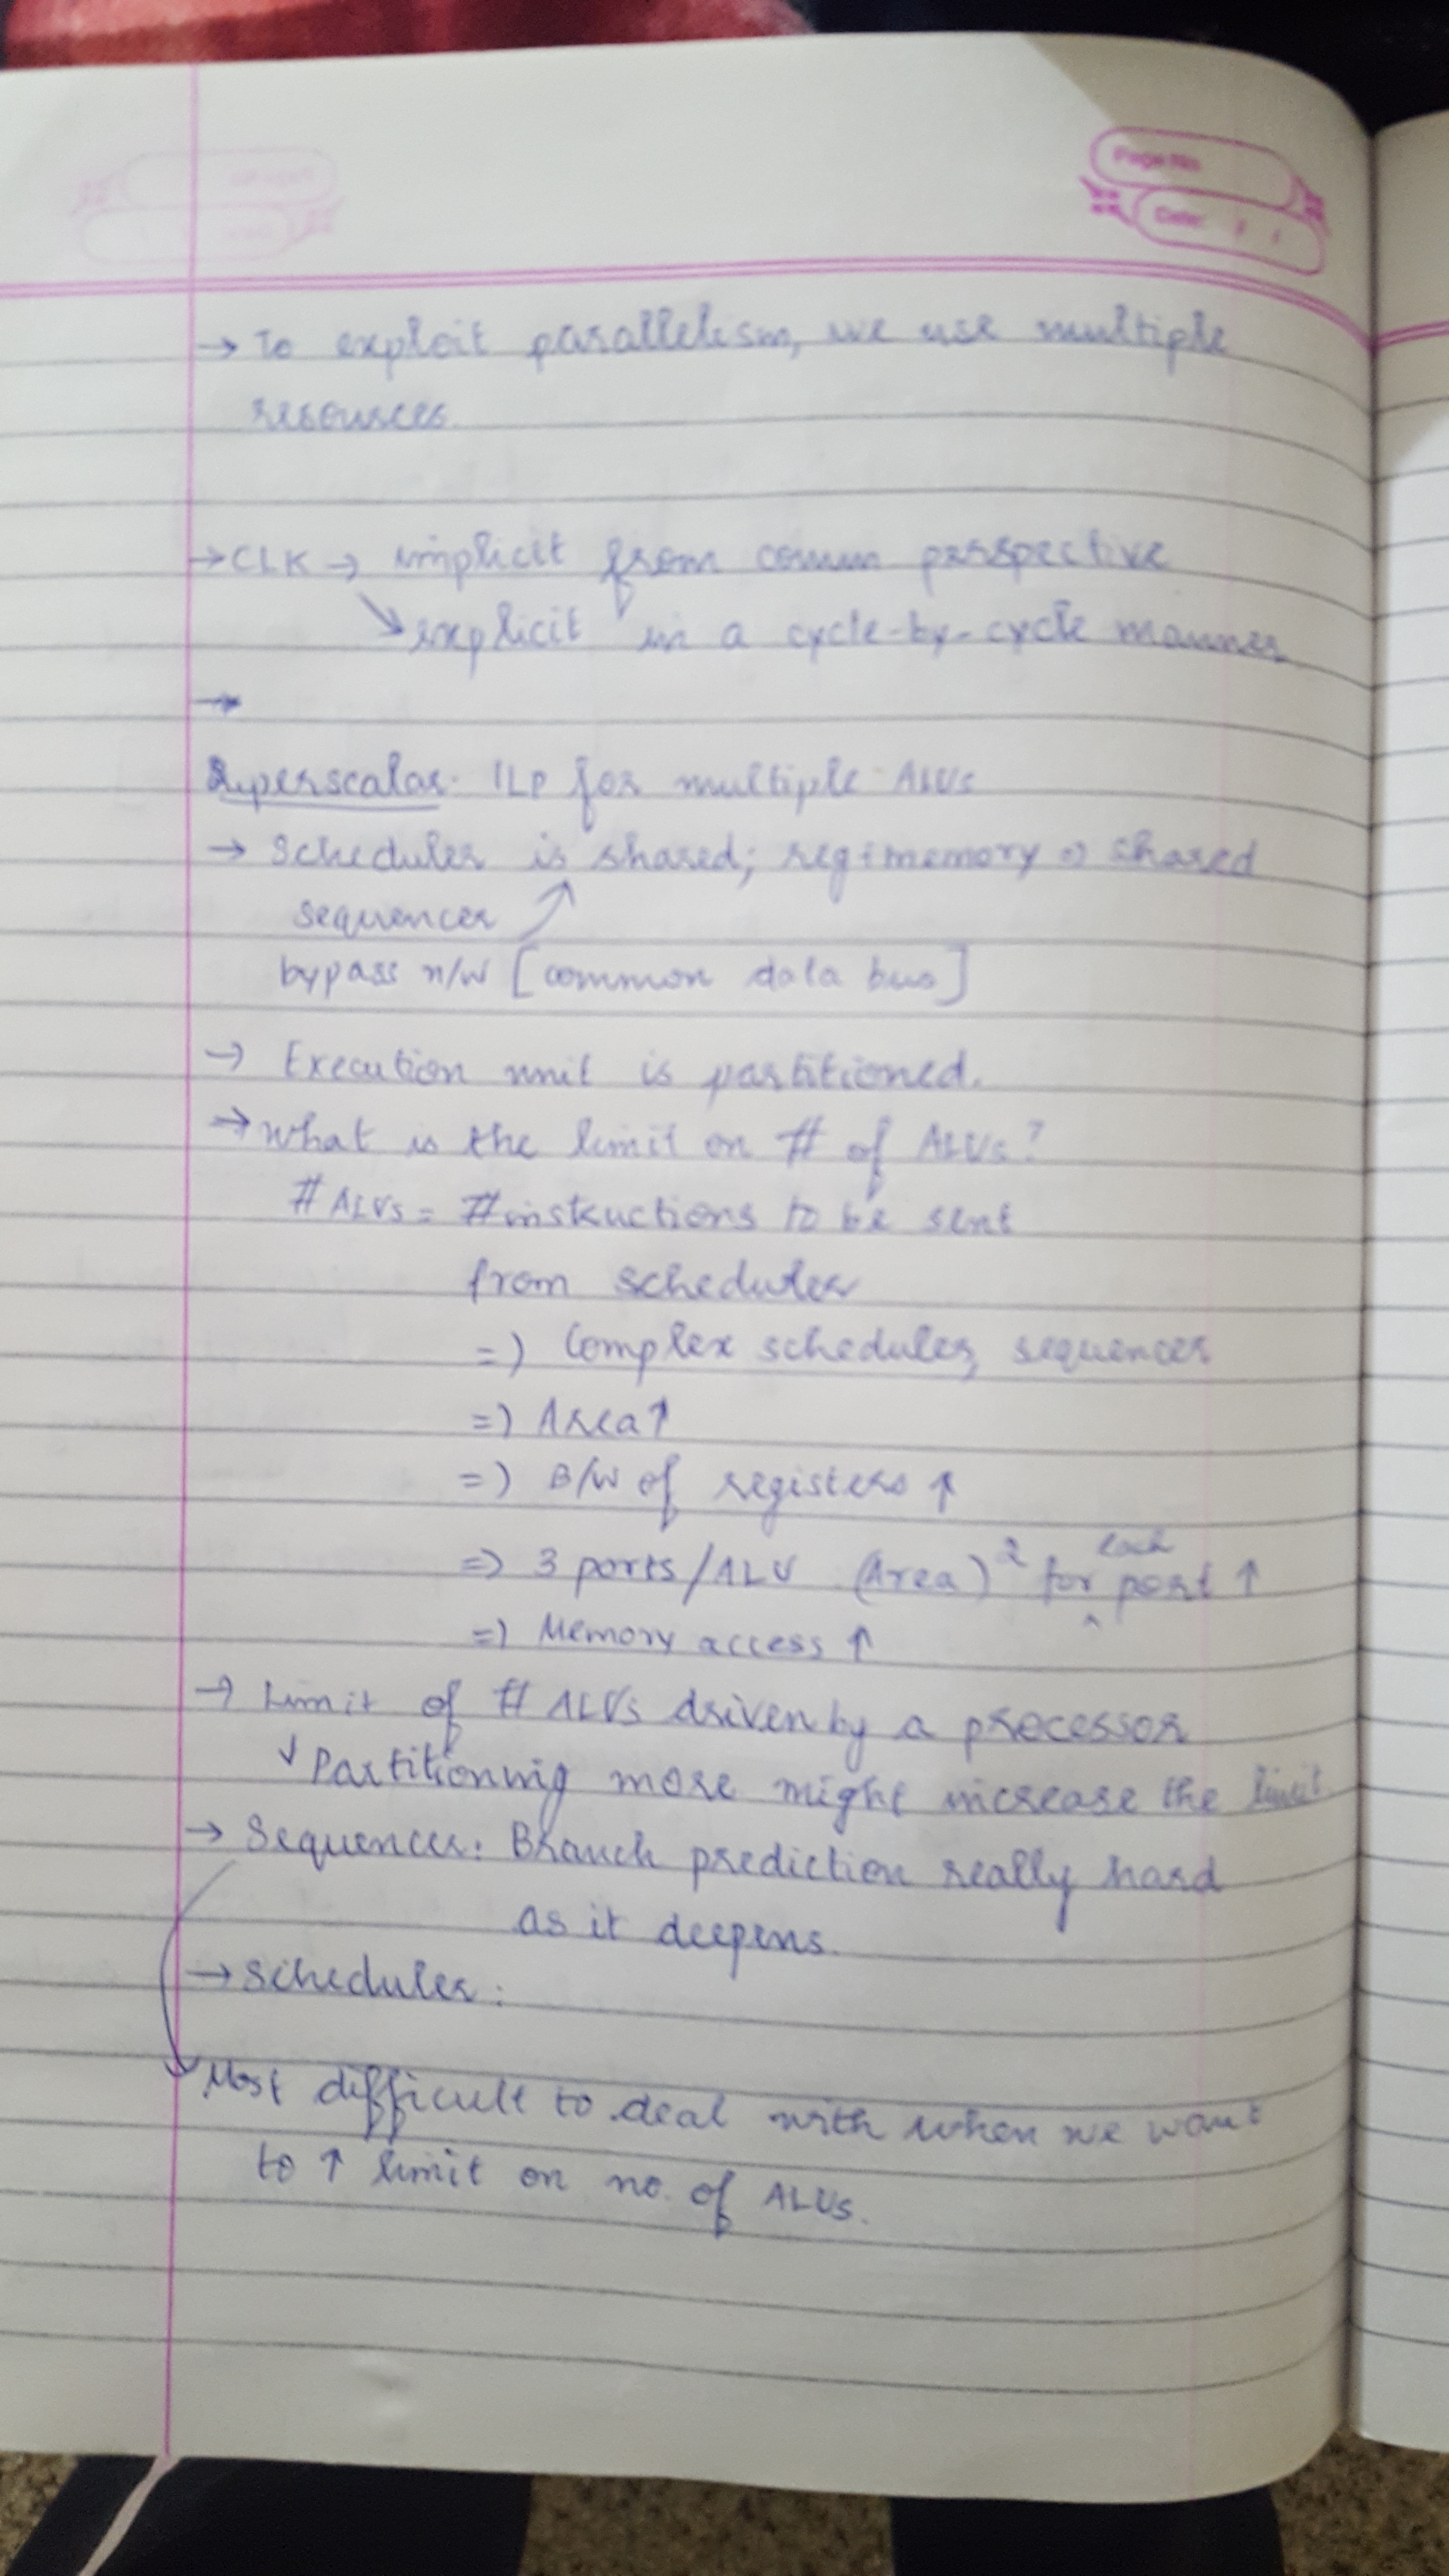 Page No.
Date: / /
→ To exploit parallelism, we use multiple
resources.
→ CLK → implicit from comm perspective
↘ explicit in a cycle-by-cycle manner
→
Superscalar: ILP for multiple ALUs
→ Scheduler is shared; reg+memory → shared
sequencer
bypass n/w [common data bus]
→ Execution unit is partitioned.
→ What is the limit on # of ALUs?
# ALUs = # instructions to be sent
from scheduler
=) Complex scheduler, sequencer
=) Area ↑
=) B/W of registers ↑
=> 3 ports/ALU (Area)² for each port ↑
=) Memory access ↑
→ Limit of # ALUs driven by a processor
↓ Partitioning more might increase the limit
→ Sequencer: Branch prediction really hard
as it deepens.
→ Scheduler:
Most difficult to deal with when we want
to ↑ limit on no. of ALUs.